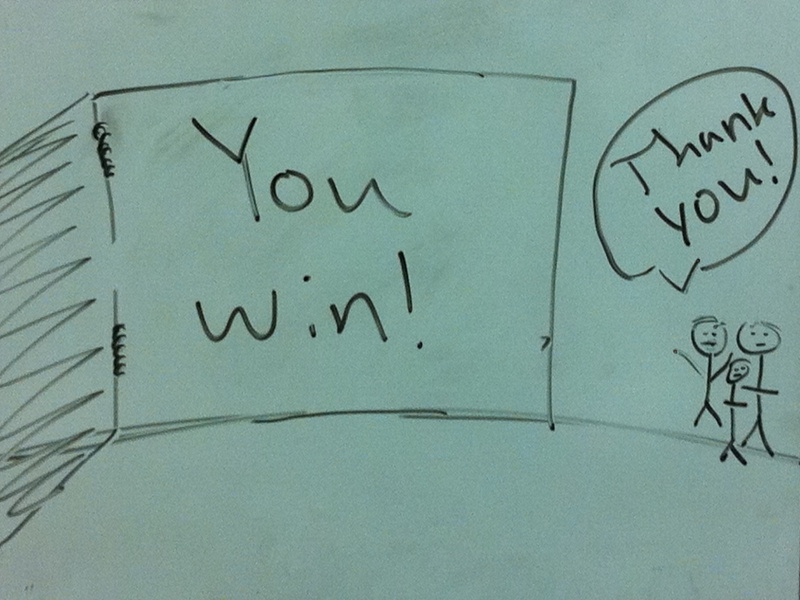 You
Win!
Thank
you!